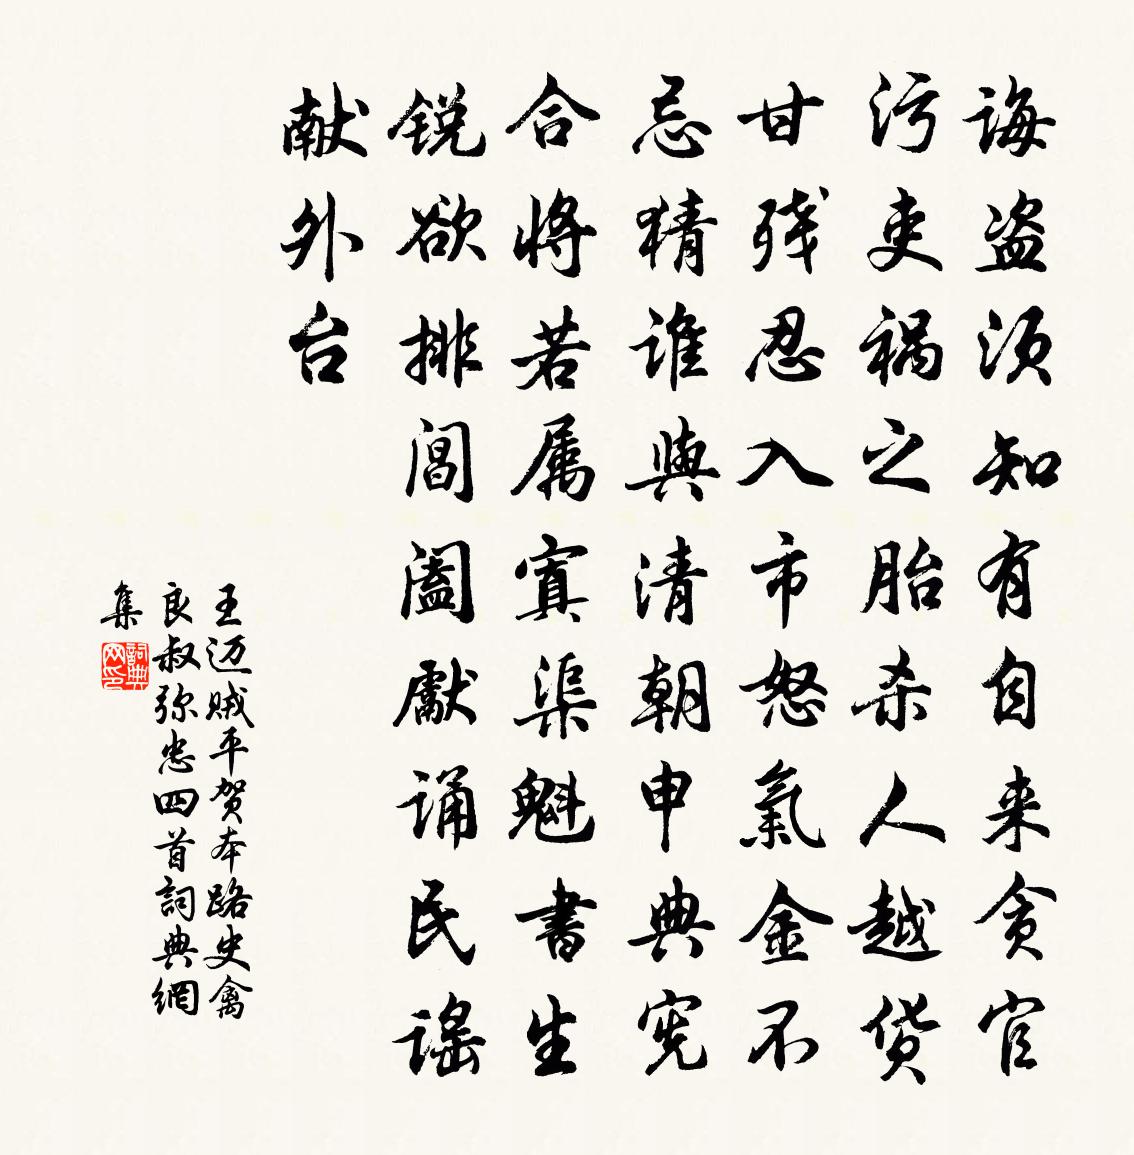 诲盗须知有自来贪官
污吏祸之胎杀人越货
甘残忍入市怒氣金不
忌猜谁與清朝申典宪
合将若属寘渠魁書生
锐欲排閶阖獻诵民谣
献外台
王迈贼平贺本路史禽
良叔弥忠四首詞典網
集
詞典
网印